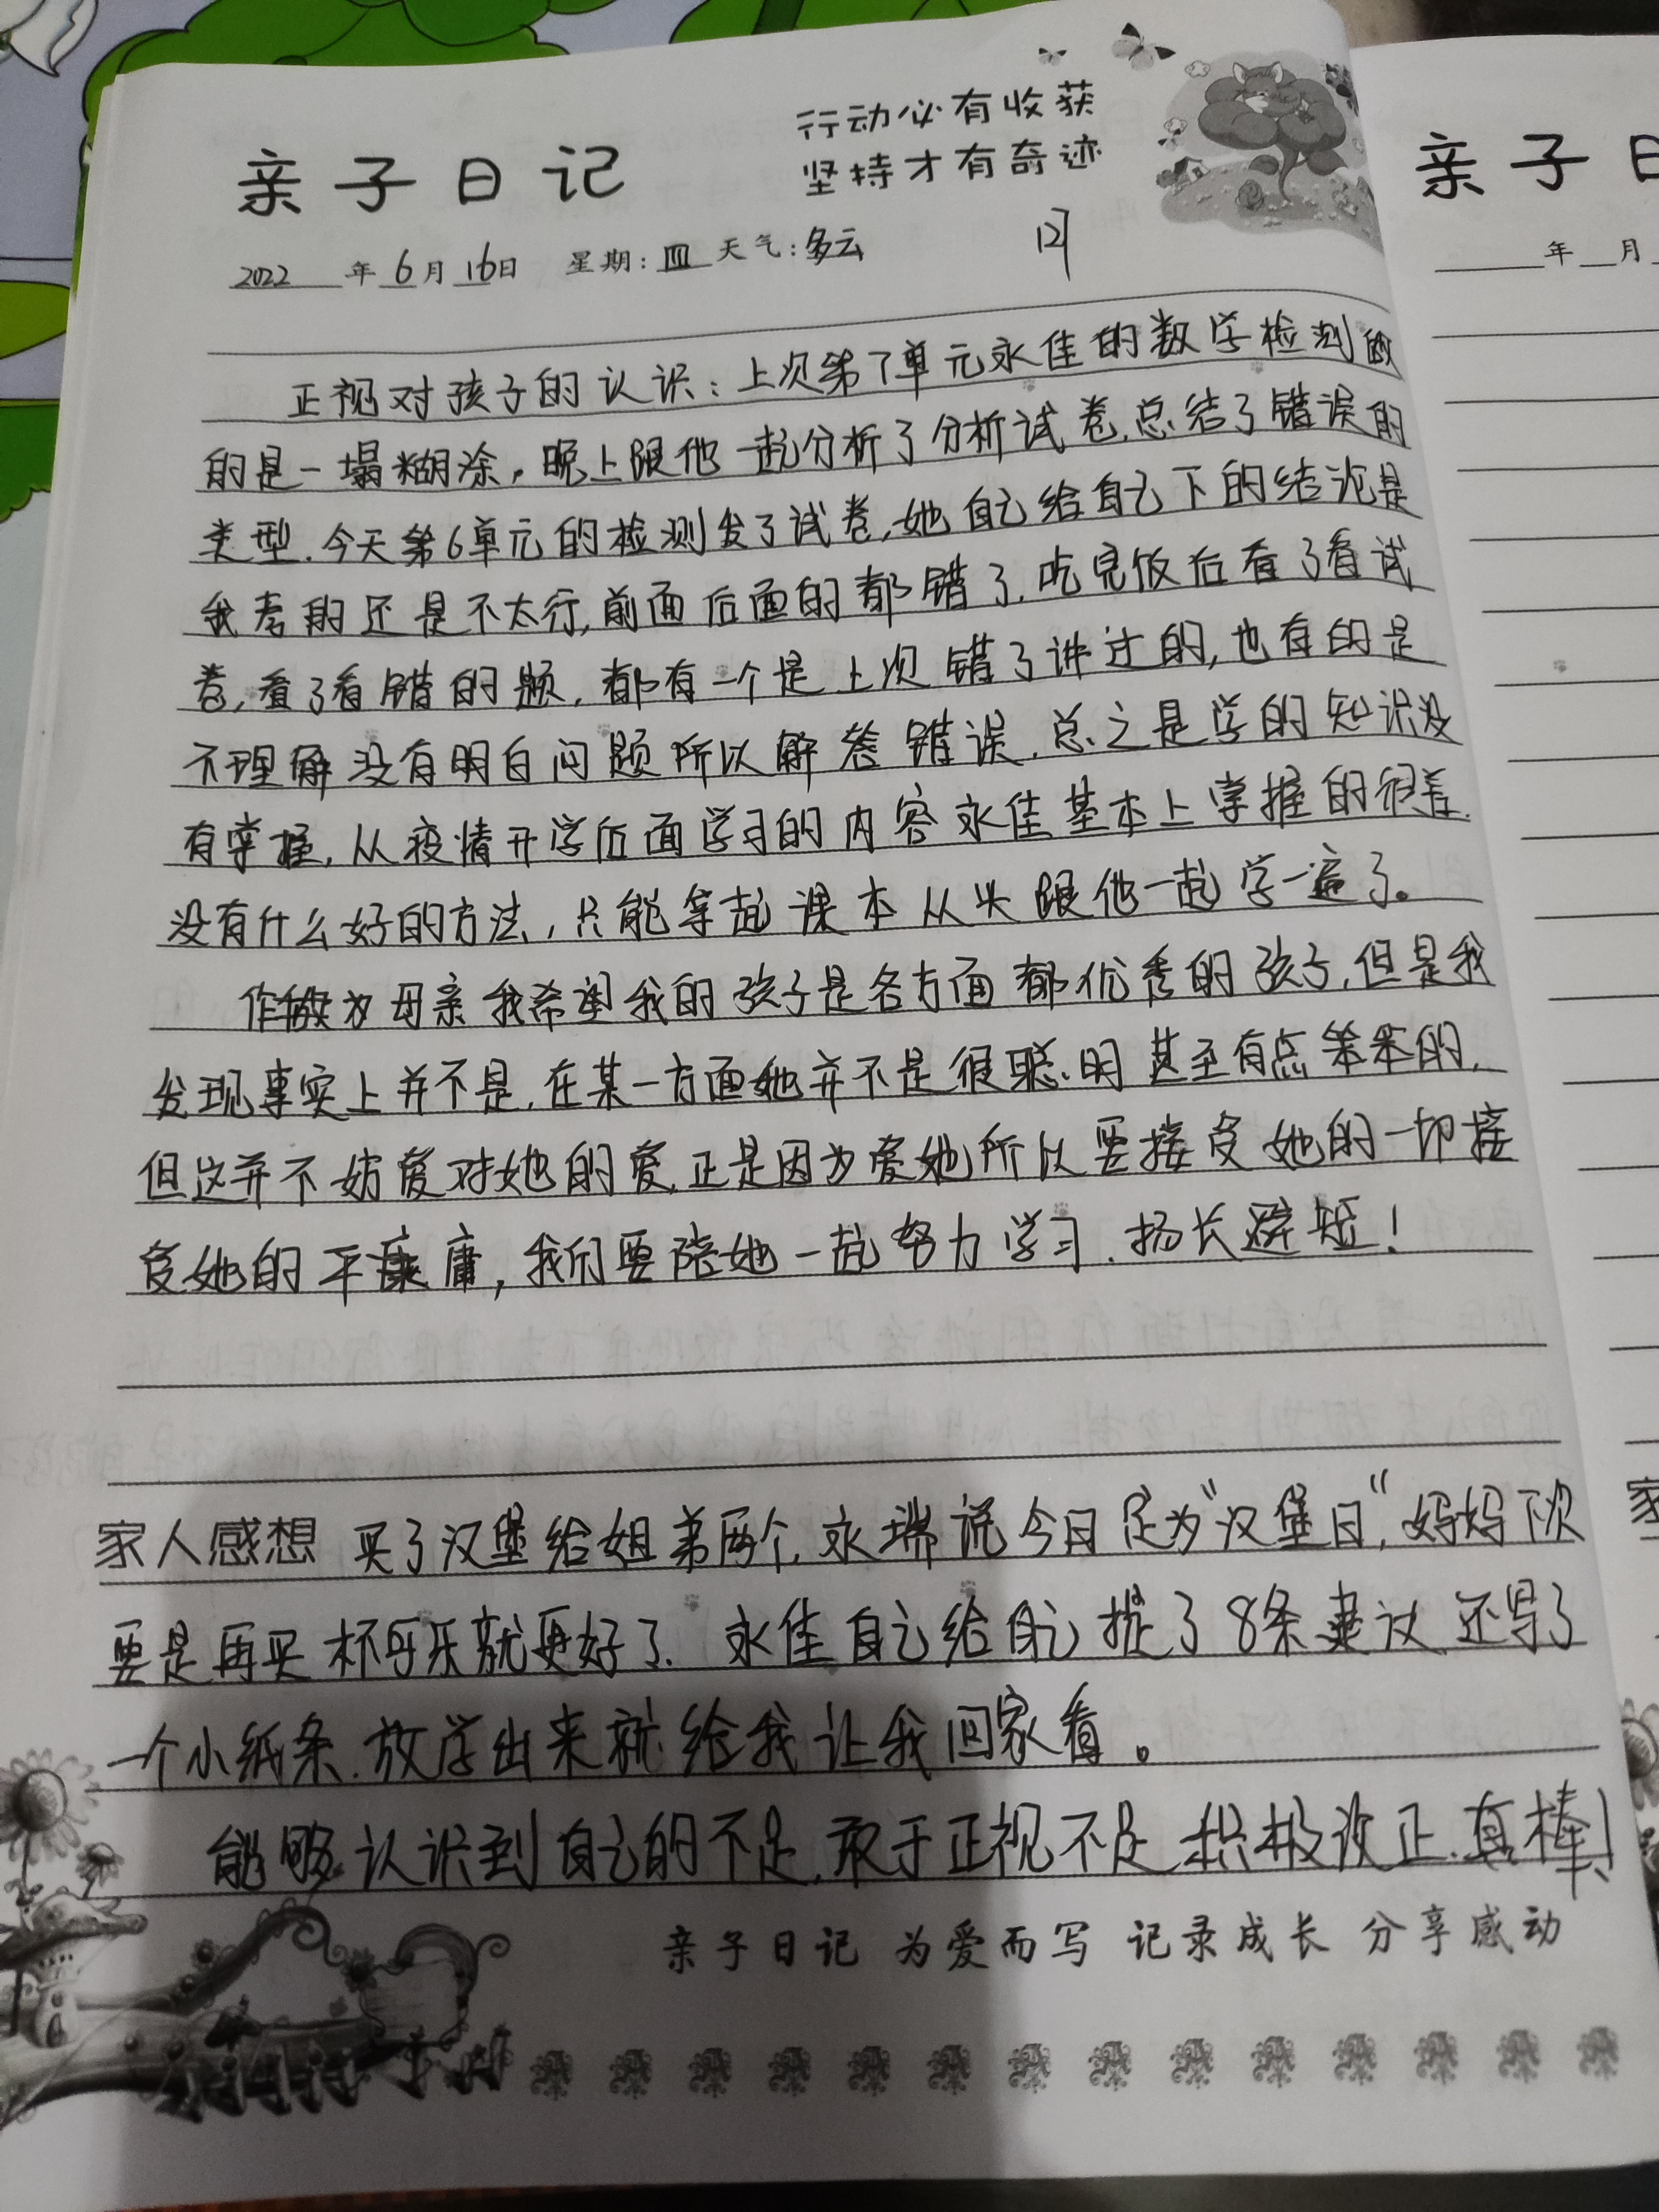 行动必有收获
亲子日记 坚持才有奇迹
2022年6月16日 星期:四 天气:多云
正视对孩子的认识:上次第7单元永佳的数学检测的
的是一塌糊涂,晚上跟他一起分析了分析试卷,总结了错误的
类型.今天第6单元的检测发了试卷,她自己给自己下的结论是
我考的还是不太行,前面后面的都错了.吃完饭后看了看试
卷,看了看错的题,都有一个是上次错了讲过的,也有的是
不理解没有明白问题所以解答错误.总之是学的知识没
有掌握,从疫情开学后面学习的内容永佳基本上掌握的很差.
没有什么好的方法,只能拿起课本从头跟他一起学一遍了。
作为母亲我希望我的孩子是各方面都优秀的孩子,但是我
发现事实上并不是,在某一方面她并不是很聪明甚至有点笨笨的,
但这并不妨爱对她的爱,正是因为爱她所以要接受她的一切接
受她的平庸,我们要陪她一起努力学习.扬长避短!
家人感想 买了汉堡给姐弟两个,永瑞说今日定为"汉堡日",妈妈下次
要是再买杯可乐就更好了. 永佳自己给自己提了8条建议还写了
一个小纸条.放学出来就给我让我回家看。
能够认识到自己的不足,敢于正视不足 积极改正.真棒!
亲子日记 为爱而写 记录成长 分享感动
亲子日
年 月
家